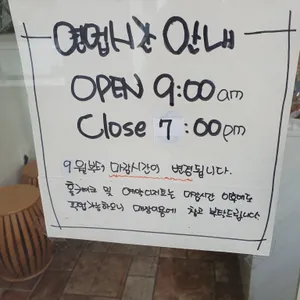 영업시간 안내
OPEN 9:00 am
Close 7:00pm
9월부터 마감시간이 변경됩니다.
및 예약디저트는 마감시간 이후에도
픽업가능하오니 매장이용에 참고 부탁드립니다